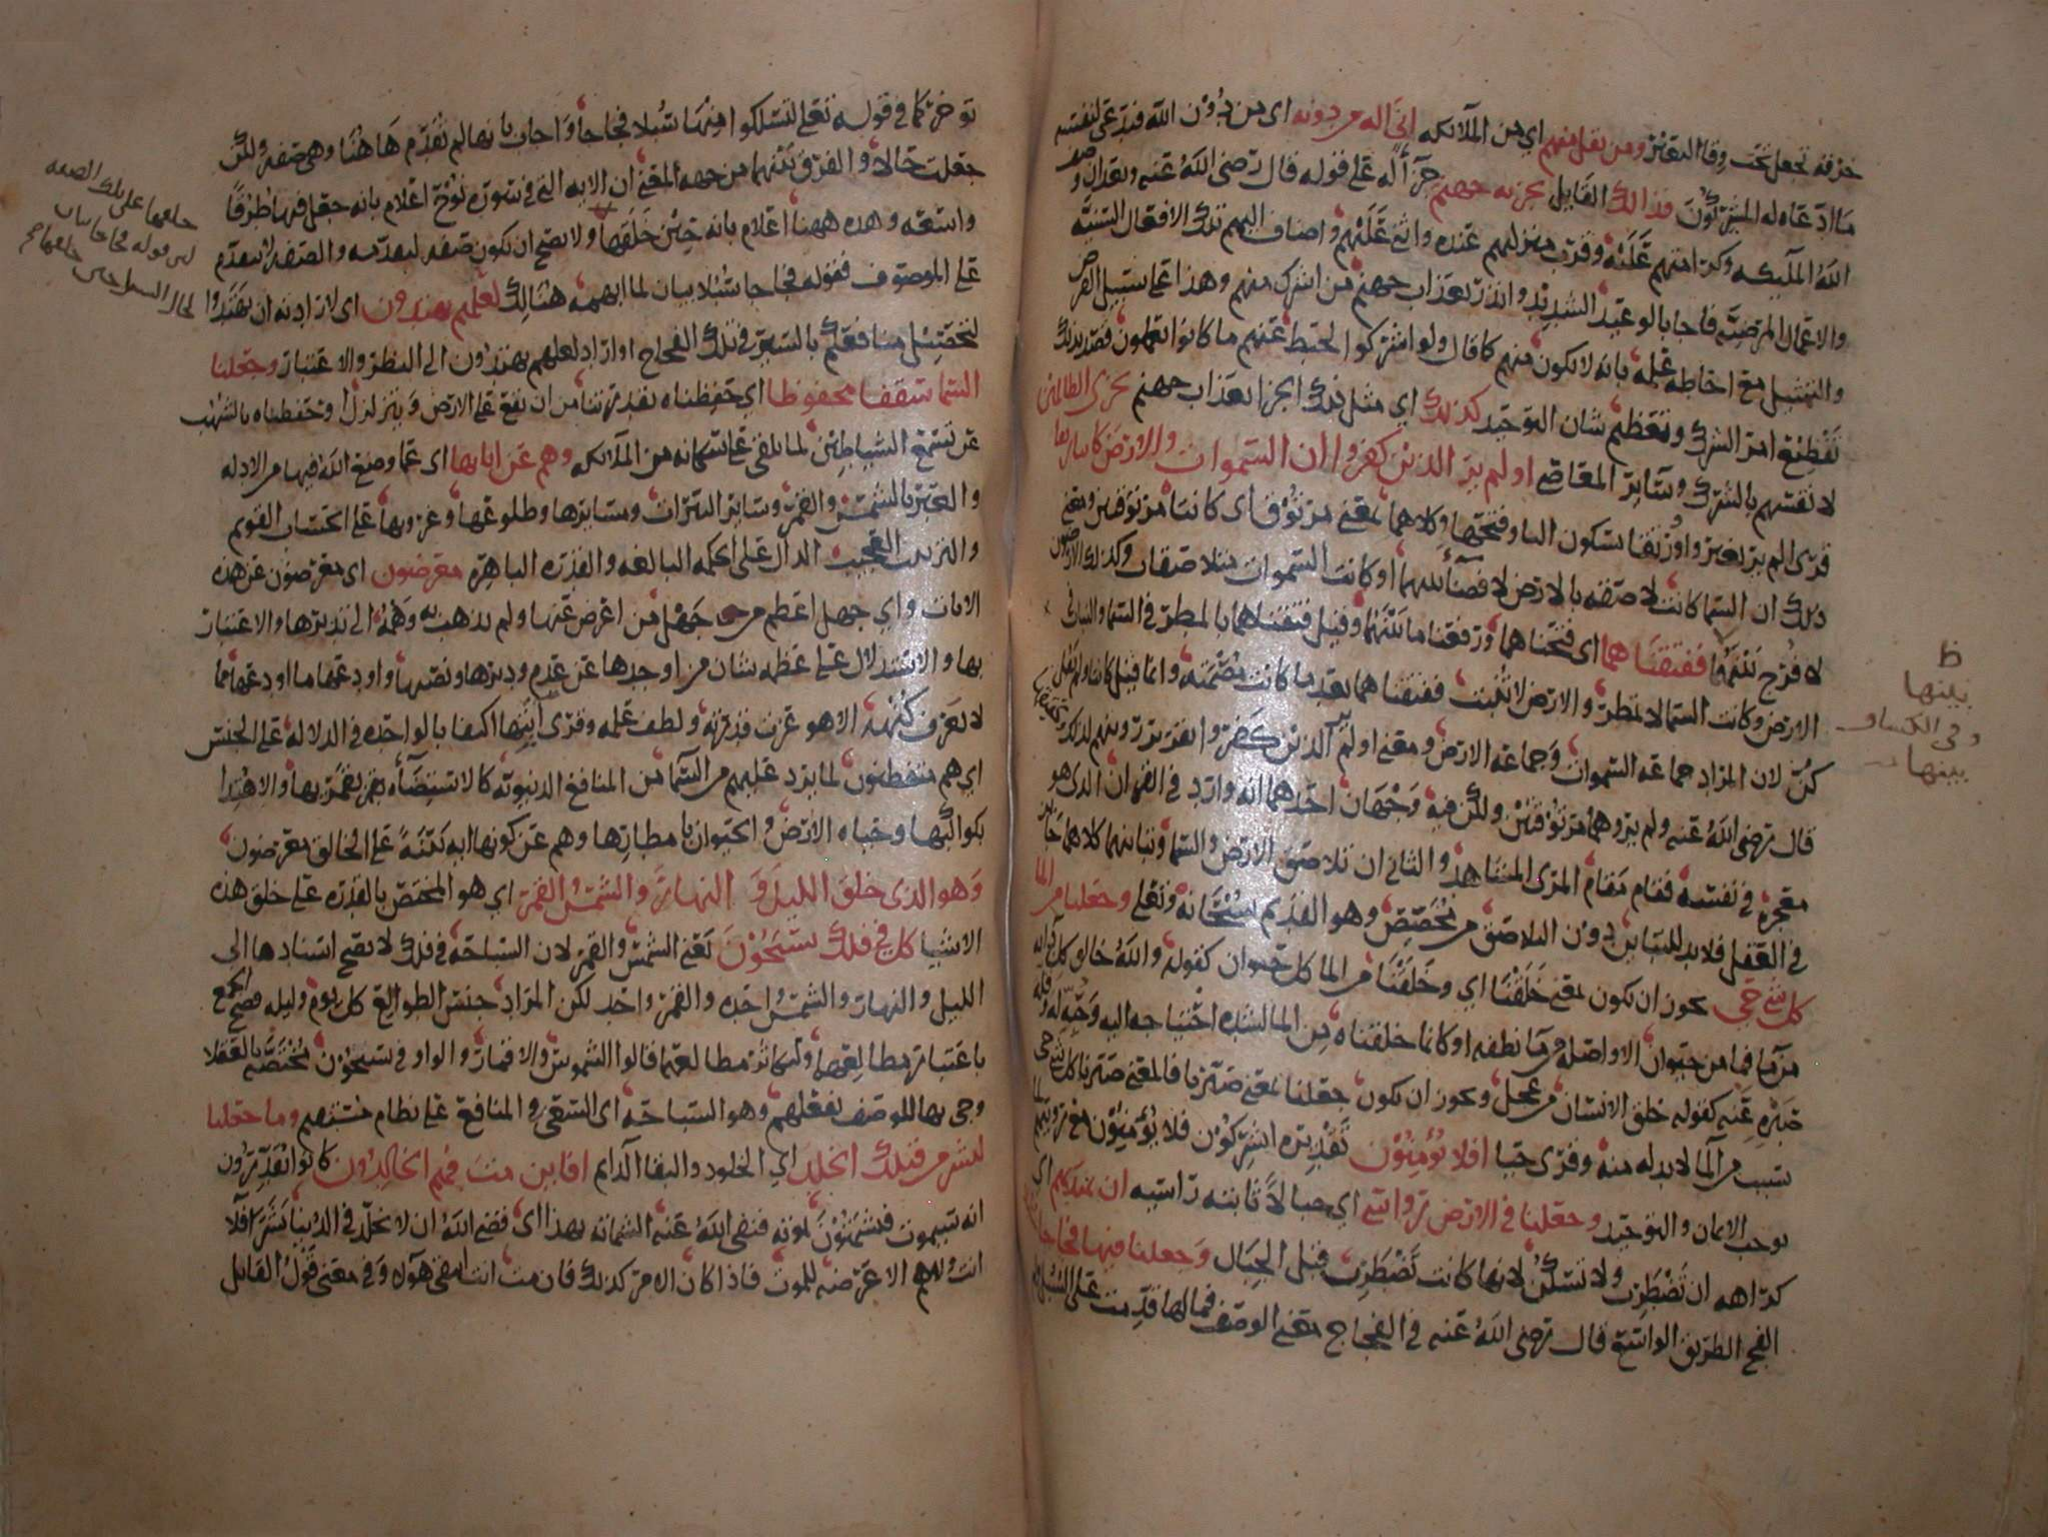 خرقه تجعل تحت وقا التغير ومن يقل منهم اي من الملائكه اني اله من دونه اي من دون الله فيدعى لنفسه
ما ادعاه له المشركون فذالك القايل نجزيه جهنم جزآءً له على قوله قال رضي الله عنه وبعد ان وصف
الله الملئكه وكرامتهم عليه وقرب منزلتهم عنده واثنى عليهم واضاف اليهم تلك الافعال السنيه
والاعمال المرضيه فاجا بالوعيد الشديد وانذر بعذاب جهنم من اشرك منهم وهذا على سبيل الفرض
والتمثيل مع احاطه علمه بانه لا يكون منهم كما قال ولو اشركوا لحبط عنهم ما كانوا يعملون فقصد بذلك
تفظيع امر الشرك وتعظيم شان التوحيد كذلك اي مثل ذلك الجزا بعذاب جهنم نجزي الظالمين
لانفسهم بالشرك وساير المعاصي اولم ير الذين كفروا ان السموات والارض كانتا رتقا
قرى الم ير بغير واو رتقا بسكون التا وفتحها وكلاهما بمعنى مرتوق اي كانتا مرتوقتين ومعنى
ذلك ان السما كانت لاصقه بالارض لا فصآ بينهما او كانت السموات متلاصقات وكذلك الارضون
لا فرج بينهما ففتقناهما اي فتحناهما ورفعنا ما بينهما وقيل ففتقناهما بالمطر في السما والنبات في
الارض وكانت السما لا تمطر والارض لا تنبت ففتقناهما بعد ما كانت مصمته وانما قيل كانتا ولم يقل
كن لان المراد جماعه السموات وجماعه الارض ومعنى اولم ير الذين كفروا
قال رضي الله عنه ولم يروهما مرتوقتين ولكن فيه وجهان احدهما انه وارد في القران الذي هو
معجزه في نفسه فقام مقام المرئ المشاهد والثاني ان تلاصق الارض والسما وتباينهما كلاهما جايز
في العقل فلا بد للتباين دون التلاصق من مخصص وهو القديم سبحانه وتعلى وجعلنا من الما
كل شي حي يجوز ان يكون بمعنى خلقنا اي وخلقنا من الما كل حيوان كقوله والله خالق كل دابه
من ما فما من حيوان الا واصله من ما نطفه او كانما خلقناه من الما لشده احتياجه اليه وحبه له وقله
صبره عنه كقوله خلق الانسان من عجل ويجوز ان يكون جعلنا بمعنى صيرنا فالمعنى صيرنا كل شي حي
بسبب من الما لا بد له منه وقرى حيا افلا يؤمنون تقديره ايشركون فلا يؤمنون مع رويتهم لما
يوجب الايمان والتوحيد وجعلنا في الارض رواسي اي جبالاً ثابته راسيه ان تميد بهم اي
كراهه ان تضطرب ولا تسكن لانها كانت تضطرب قبل الجبال وجعلنا فيها فجاجا
الفج الطريق الواسع قال رضي الله عنه في الفجاج معنى الوصف فما لها قدمت على السبل ولم
ظ
بينها
وفي الكشاف
بينهما
توخر كما في قوله تعلى لتسلكوا منها سبلا فجاجا واجاب بانها لم تقدم هاهنا وهي صفه ولكن
جعلت حالا والفرق بينهما من جهه المعنى ان الايه التي في سورة نوح اعلام بانه جعل فيها طرقاً
واسعه وهذه ههنا اعلام بانه حين خلقها ولا يصح ان يكون صفه لتقدمه والصفه لا تتقدم
على الموصوف فقوله فجاجا سبلا بيان لما ابهمه هنالك لعلهم يهتدون اي لارادته ان يهتدوا
لتحصيل منافعهم بالسير في تلك الفجاج او اراد لعلهم يهتدون الى النظر والاعتبار وجعلنا
السما سقفا محفوظا اي حفظناه بقدرتنا من ان يقع على الارض ويتزلزل وحفظناه بالشهب
عن تسمع الشياطين لما يلقى على سكانه من الملائكه وهم عن اياتها اي عما وضع الله فيها من الادله
والعبر بالشمس والقمر وساير النيرات ومسايرها وطلوعها وغروبها على الحساب القويم
والترتيب العجيب الدال على الحكمه البالغه والقدره الباهره معرضون اي معرضون عن هذه
الايات واي جهل اعظم من جهل من اعرض عنها ولم يذهب به وهمه الى تدبرها والاعتبار
بها والاستدلال على عظمه شان من اوجدها عن عدم ودبرها ونصبها واودعها ما اودعها مما
لا يعرف كنهه الا هو عزت قدرته ولطف علمه وقرى ايتها اكتفا بالواحده في الدلاله على الجنس
اي هم متفطنون لما يرد عليهم من السما من المنافع الدنيويه كالاستضآءه بقمريها والاهتدا
بكواكبها وحياه الارض والحيوان بامطارها وهم عن كونها ايه بينةً على الخالق معرضون
وهو الذي خلق الليل والنهار والشمس والقمر اي هو المختص بالقدره على خلق هذه
الاشيا كل في فلك يسبحون يعني الشمس والقمر لان السباحه في فلك لا يصح اسنادها الى
الليل والنهار والشمس واحده والقمر واحد لكن المراد جنس الطوالع كل يوم وليله فصح الجمع
باعتبار مطالعها ولتكاثر مطالعها قالوا الشموس والاقمار والواو في يسبحون مختصه بالعقلا
وجى بها للوصف بفعلهم وهو السباحه اي السعي والمنافع على نظام حسنهم وما جعلنا
لبشر من قبلك الخلد اي الخلود والبقا الدايم افاين مت فهم الخالدون كانوا يقدرون
انه سيموت فيشمتون بموته فنفى الله عنه الشماته بهذا اي قضى الله ان لا يخلد في الدنيا بشرا فلا
انت ولا هم الا عرضه للموت فاذا كان الامر كذلك فان مت انت ايبقى هولا وفي معنى قول القائل
خلقها على تلك الصفه